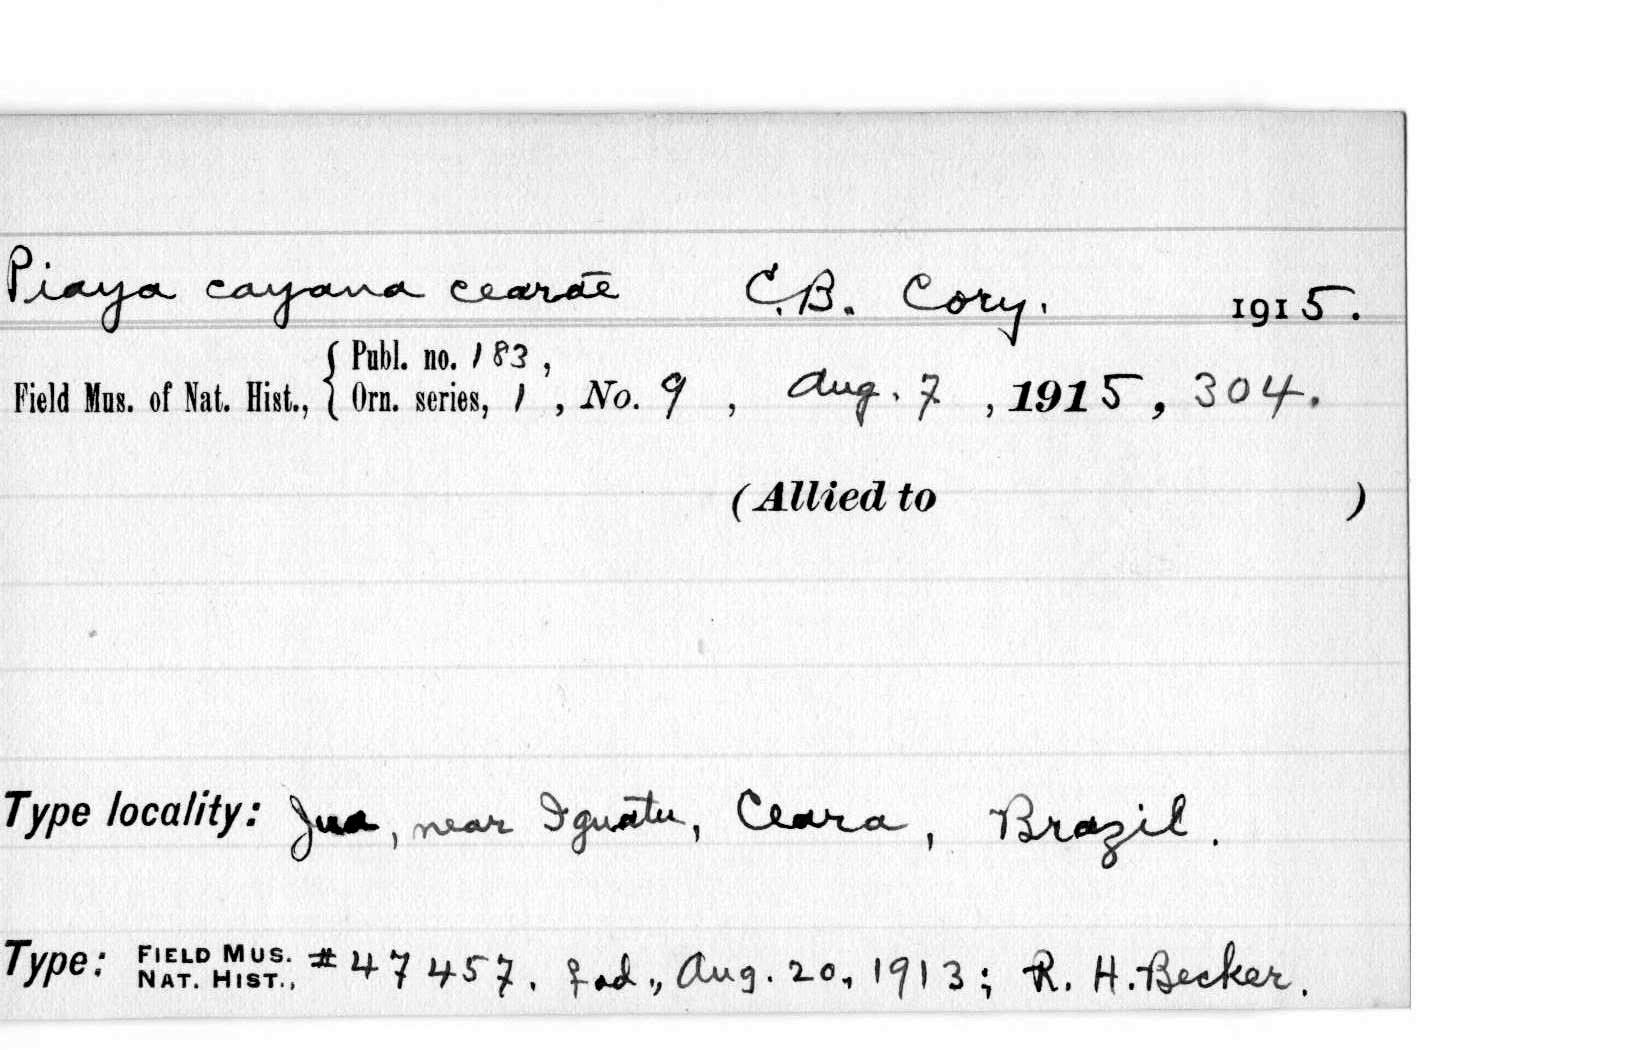 Piaya cayana cearae C.B. Cory. 1915.
Field Mus. of Nat. Hist., { Publ. no. 183,
Orn. series, 1, No. 9, Aug. 7, 1915, 304.
(Allied to )
Type locality: Jua, near Iguatu, Ceara, Brazil.
Type: FIELD MUS. NAT. HIST., #47457. f ad., Aug. 20, 1913; R. H. Becker.